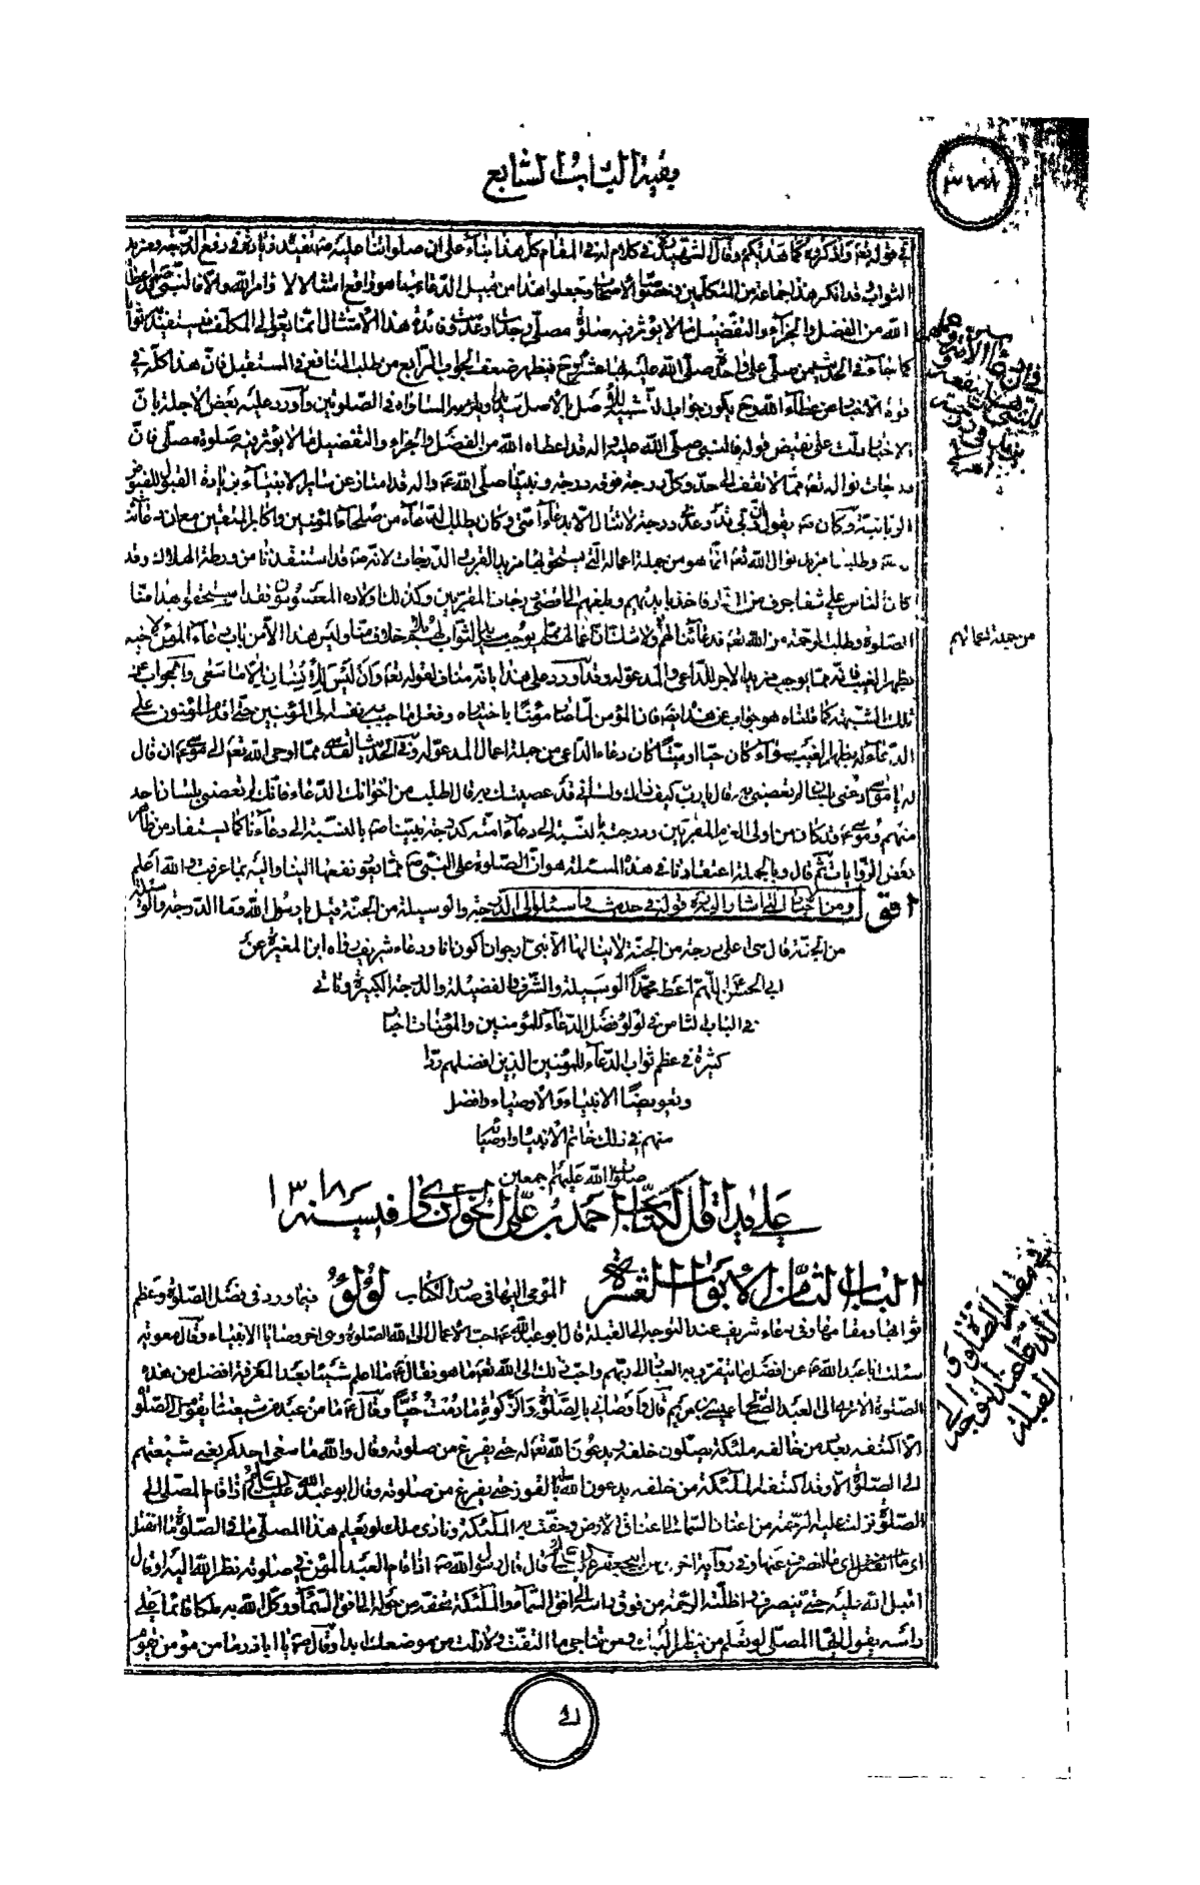 بقية الباب السابع
في قوله تعالى واذكروه كما هديكم وقال الشهيد في كلام له في المقام كل هذا بناء على ان صلواتنا عليه
الثواب قد انكر هذا جماعة من المتكلمين وجعلوا هذا من قبيل الدعاء بما هو واقع امتثالا لامر الله والا فالنبي
الله من الفضل والجزاء والتفضيل ما لا يؤثر فيه صلوة مصل وجدت او عدمت وفائدة هذا الامتثال انما يعود الى المكلف فيستفيد به ثوابا
كما جاء في الحديث من صلى على واحدة صلى الله عليه بها عشرا وح فيظهر ضعف الجواب الرابع من طلب المنافع في المستقبل فان هذا كله في
قوة الاخبار عن عطاء الله وح يكون جواب التشبيه للاصل بالاصل ويلزم المساواة في الصلوتين واورد عليه بعض الاجلة بان
الاخبار دلت على نقيض قوله فالنبي صلى الله عليه واله قد اعطاه الله من الفضل والجزاء والتفضيل ما لا يؤثر فيه صلوة مصل فان
درجات نواله تعالى مما لا تقف الى حد وكل درجة فوقه درجة ونبينا صلى الله عليه واله قد امتاز عن سائر الانبياء بزيادة القبول للفيوض
الربانية وكان يقول ان ربي قد وعدني درجة لا تنال الا بدعاء امتي وكان يطلب الدعاء من صلحاء المؤمنين واكابر المتقين مع ان
وطلبنا مزيد نوال الله تعالى انما هو من جملة اعماله التي يستحق بها مزيد القرب الدرجات لانه قد استنقذنا من ورطة الهلاك وقد
كان الناس على شفا جرف من النار فاخذ بايديهم وبلغهم الى اقصى درجات المقربين وكذلك اولاده المعصومون فقد استحقوا بهذا منا
الصلوة وطلب الرحمة من الله تعالى فدعائنا لهم
بظهر الغيب فانه مما يوجب مزيد الاجر للداعي والمدعو له وقد اورد على هذا بانه مناف لقوله تعالى وان ليس للانسان الا ما سعى والجواب عن
تلك الشبهة كما قلناه هو جواب عن هذا ايضا فان المؤمن لما صار مؤمنا باختياره وفعل ما حبب به نفسه الى المؤمنين حتى اقدم المؤمنون على
الدعاء له بظهر الغيب سواء كان حيا او ميتا كان دعاء الداعي من جملة اعمال المدعو له وفي الحديث القدسي مما اوحى الله تعالى الى موسى ان قال
له يا موسى ادعني بلسان لم تعصني به قال يارب كيف ذلك ولساني قد عصيتك به قال اطلب من اخوانك الدعاء فانك لم تعصني بلسان احد
منهم وموسى قد كان من اولي العزم المقربين ودرجته بالنسبة الى دعاء امته كدرجة نبينا بالنسبة الى دعاءنا كما يستفاد من ظاهر
بعض الروايات ثم قال وبالجملة اعتقادنا في هذه المسئلة هو ان الصلوة على النبي مما يعود نفعها الينا واليه بما عرفت والله اعلم
اقول ومن الاخبار التي اشار اليه قوله في حديث واسئلوا لي الدرجة والوسيلة من الجنة قيل يا رسول الله وما الدرجة والوسيلة
من الجنة قال هي اعلى درجة من الجنة لا ينالها الا نبي ارجو ان اكون انا ودعاء شريف رواه ابن المغيرة عن
ابي الحسن اللهم اعط محمدا الوسيلة والشرف والفضيلة والدرجة الكبيرة وتاتي
في الباب الثامن في لؤلؤ فضل الدعاء للمؤمنين والمؤمنات اخبار
كثيرة في عظم ثواب الدعاء للمؤمنين الذين افضلهم ردا
وتعويضا الانبياء والاوصياء وافضل
منهم في ذلك خاتم الانبياء واوصيائه
صلوات الله عليهم اجمعين
على يد اقل الكتاب احمد بن علي الخوانساري في سنة ١٣١٨
الباب الثامن الابواب العشرة المومى اليها في صدر الكتاب لؤلؤ فيما ورد في فضل الصلوة وعظم
ثوابها ومقامها وفي دعاء شريف عند التوجه الى القبلة قال ابو عبد الله احب الاعمال الى الله الصلوة وهي اخر وصايا الانبياء وقال معوية
سئلت ابا عبد الله عن افضل ما يتقرب به العباد الى ربهم واحب ذلك الى الله تعالى ما هو فقال ما اعلم شيئا بعد المعرفة افضل من هذه
الصلوة الا ترى ان العبد الصالح عيسى بن مريم قال واوصاني بالصلوة والزكوة ما دمت حيا وقال ما من عبد من شيعتنا يقوم الى الصلوة
الا اكتنفه بعدد من خالفه ملئكة يصلون خلفه ويدعون الله تعالى له حتى يفرغ من صلوته وقال والله ما سعى احدكم يعني شيعتهم
الى الصلوة الا وقد اكتنفه الملئكة من خلفه يدعون الله بالفوز حتى يفرغ من صلوته وقال ابو عبد الله عليه السلام اذا قام المصلي الى
الصلوة نزلت عليه الرحمة من اعنان السماء الى اعنان الارض وحفت به الملئكة ونادى ملك لو يعلم هذا المصلي ما في الصلوة ما انفتل
اي ما انفتل اي ما انصرف عنها وفي رواية اخرى عن ابيجعفر عليه السلام قال قال رسول الله اذا قام العبد المؤمن في صلوته نظر الله اليه او قال
اقبل الله عليه حتى ينصرف واظلته الرحمة من فوق راسه الى افق السماء والملئكة تحفه من حوله الى افق السماء ووكل الله به ملكا قائما على
راسه يقول ايها المصلي لو تعلم من ينظر اليك ومن تناجي ما التفت ولا زلت من موضعك ابدا وقال يا اباذر ما من مؤمن يقوم
من جملة اعمالهم
في مقام الصلوة وفي
الدعاء عند التوجه الى
القبلة